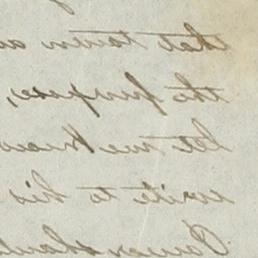 that town a
the purpose,
let me know
write to his